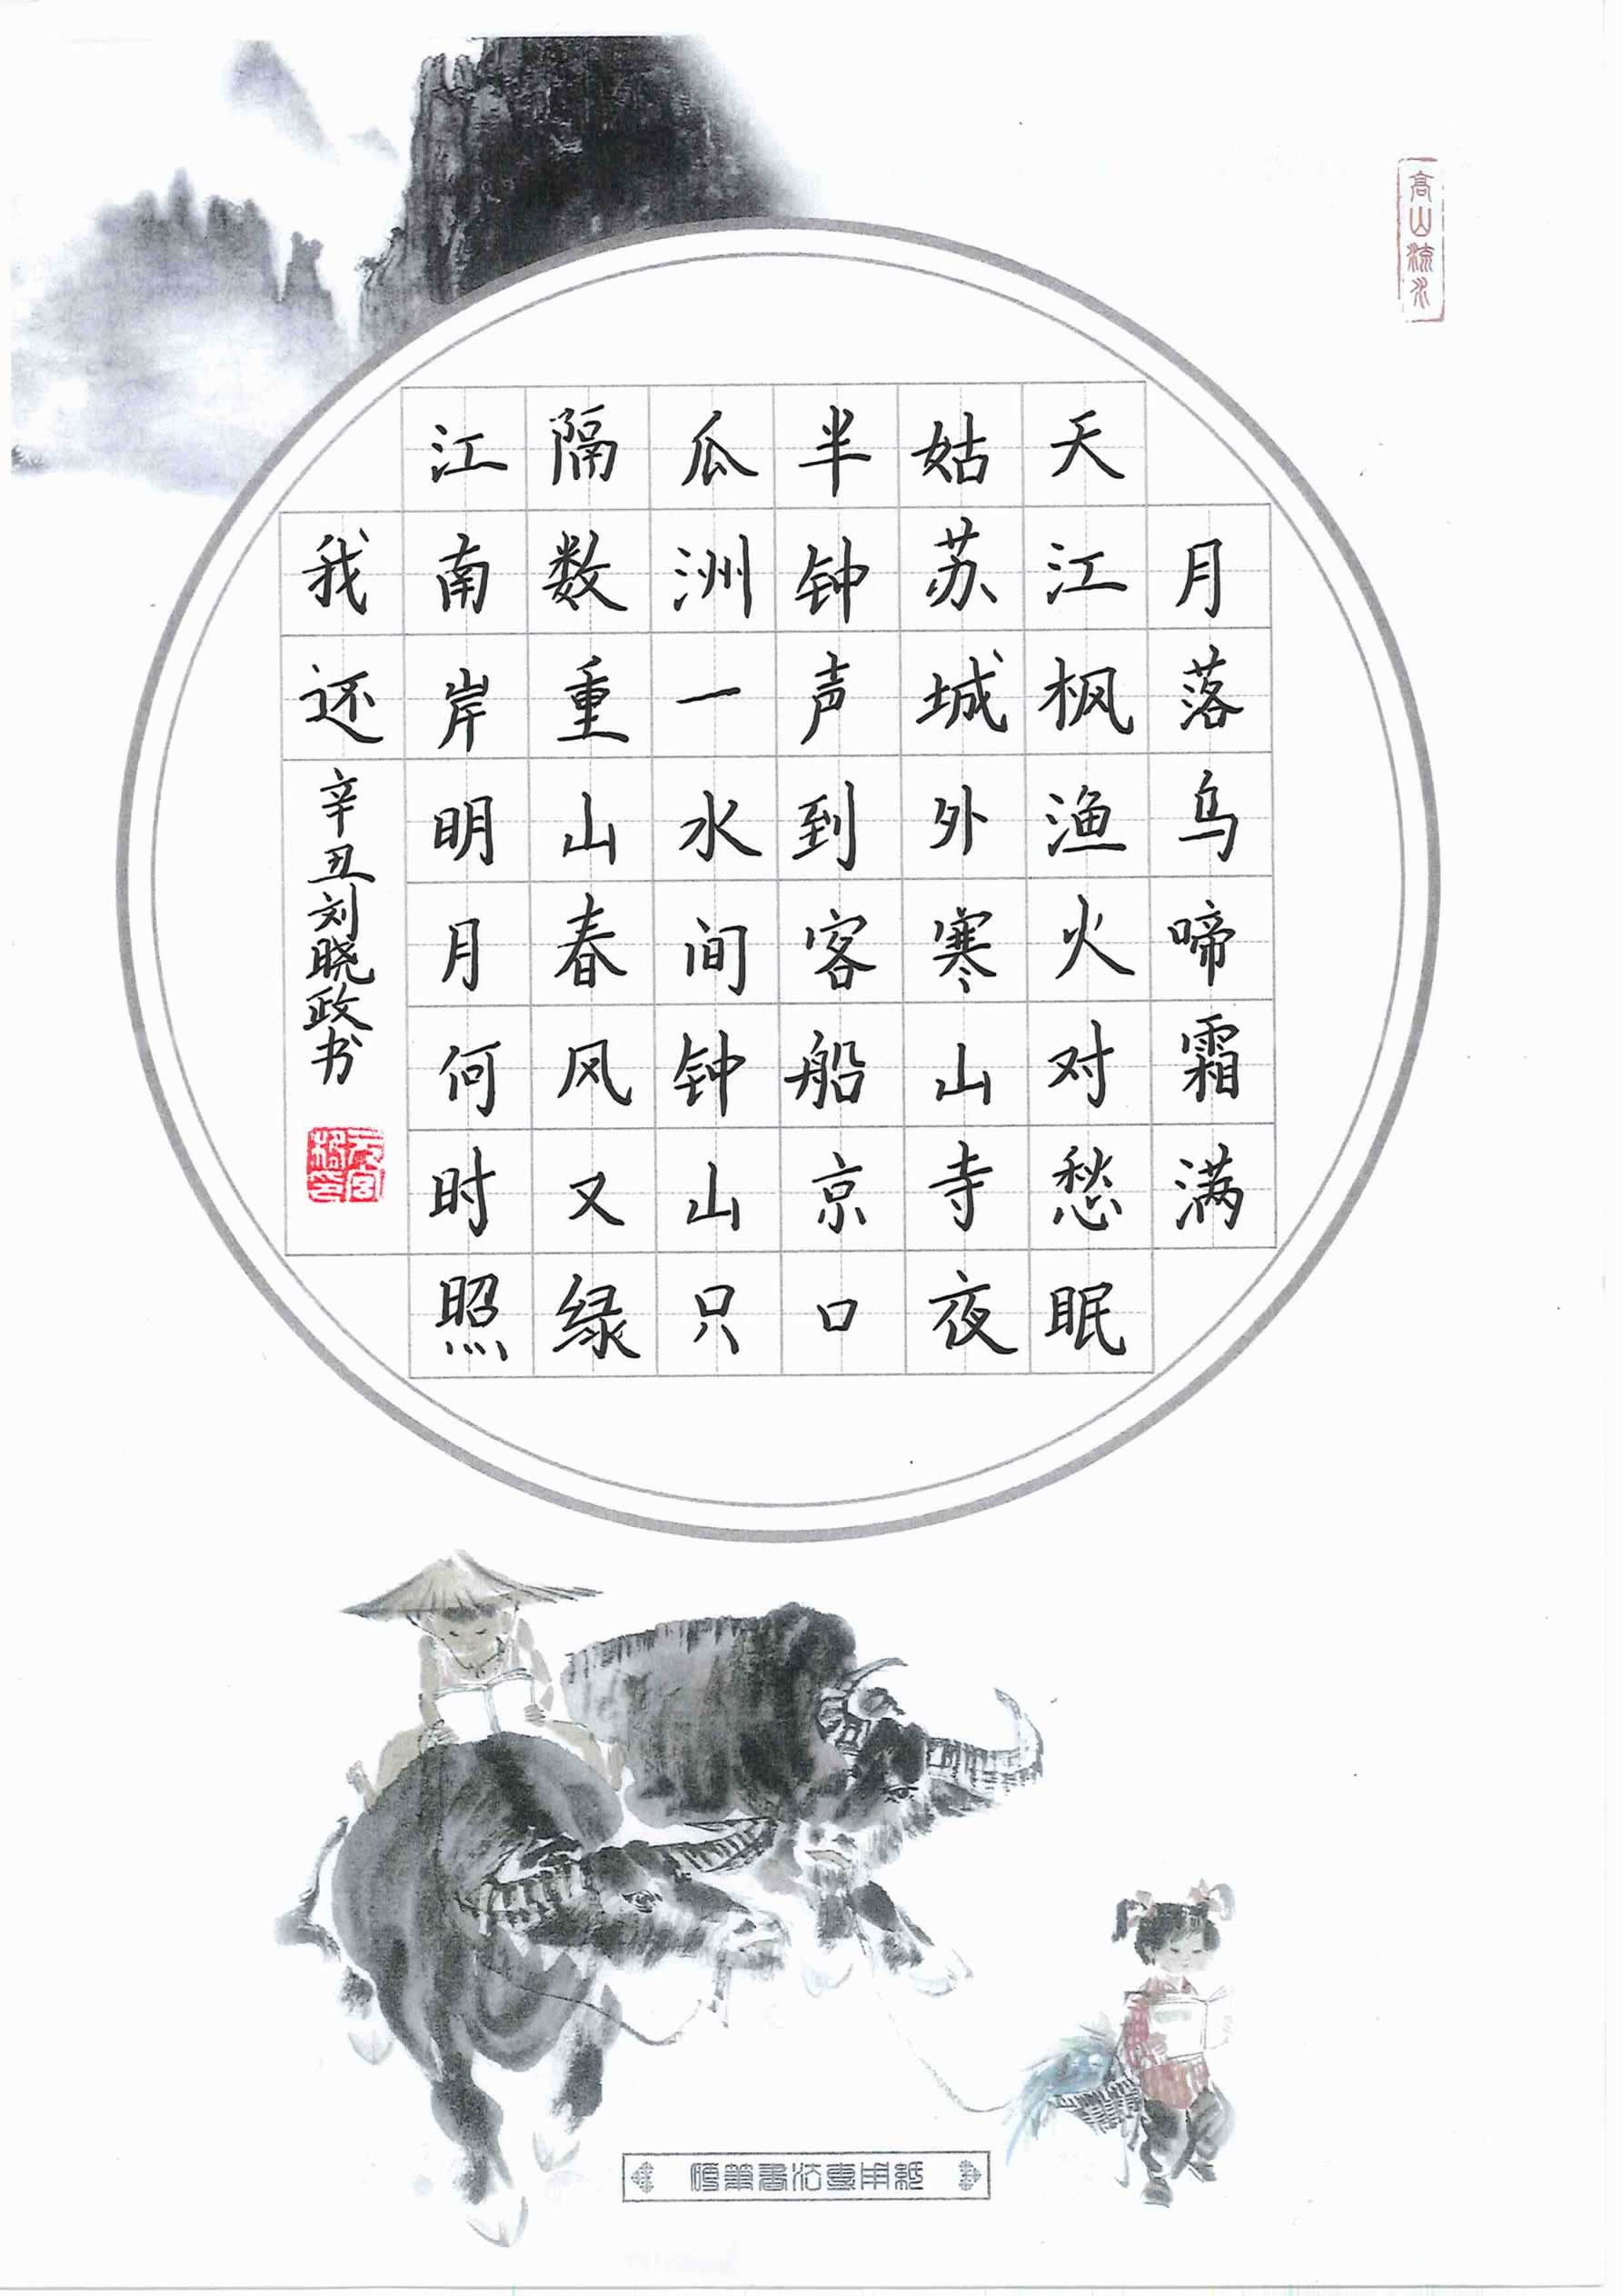 高山流水
月落乌啼霜满
天江枫渔火对愁眠
姑苏城外寒山寺夜
半钟声到客船京口
瓜洲一水间钟山只
隔数重山春风又绿
江南岸明月何时照
我还
辛丑刘晓政书
硬筆書法專用紙